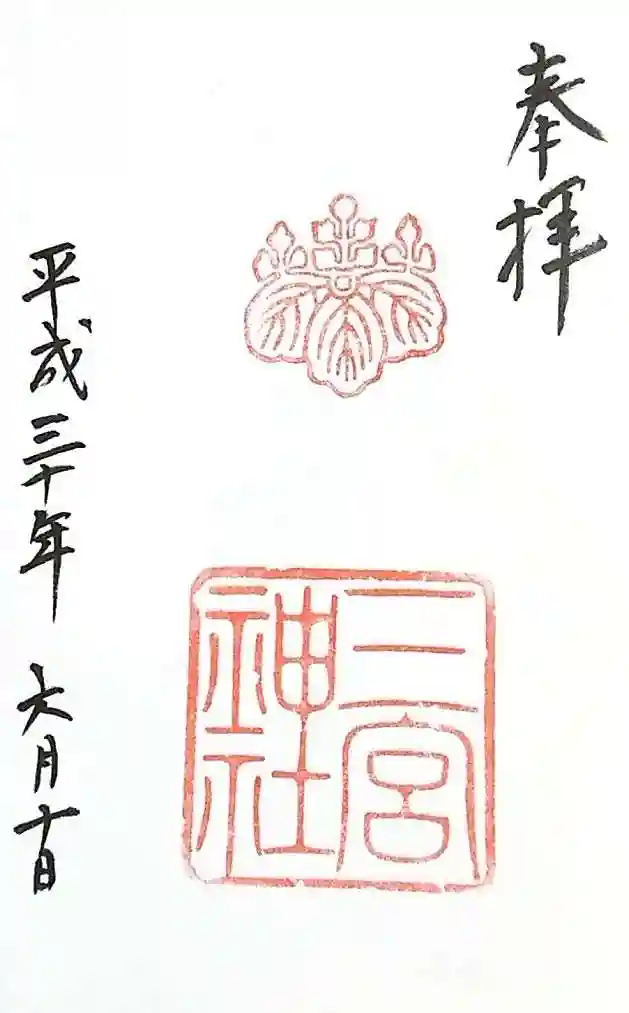 奉拝
三宮
神社
平成三十年 六月十日